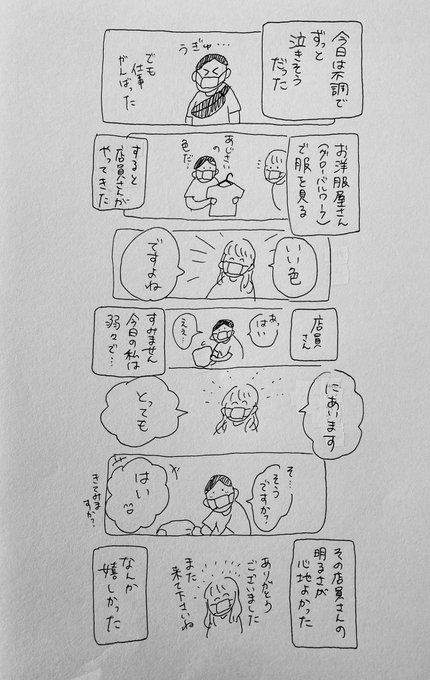 今日は不調で
ずっと
泣きそう
だった
うぎゅ…
でも
仕事
がんばった
お洋服屋さん
(グローバルワーク)
で服を見る
あじさい
の
色だ…
すると
店員さんが
やってきた
いい色
ですよね
店員
さん
あっ
はい
ええ…
すみません
今日の私は
弱々で…
にあいます
とっても
そ…
そう
ですか?
はい
きてみま
すか?
その店員さんの
明るさが
心地よかった
ありがとう
ございました
また
来て下さいね
なんか
嬉しかった